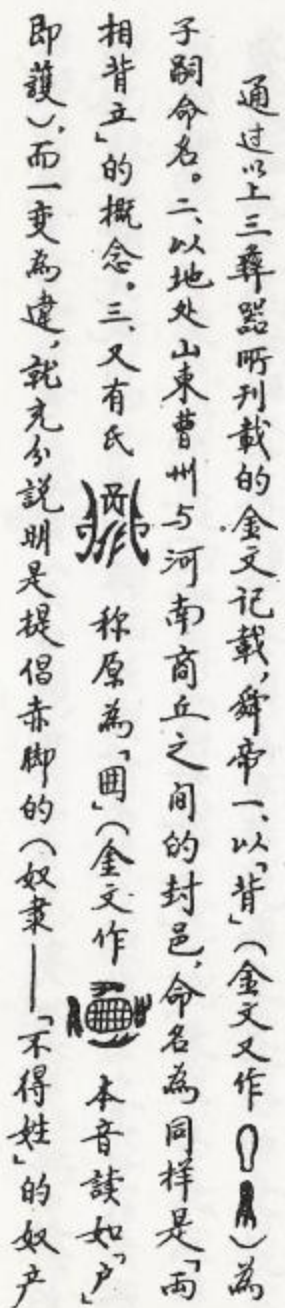 通过以上三彝器所刊載的金文记載，舜帝一、以「背」（金文又作）為
子嗣命名。二、以地处山東曹州与河南商丘之间的封邑，命名為同样是「兩
相背立」的概念。三、又有氏称原為「囲」（金文作本音讀如「户」
即護），而一变為違，就充分説明是提倡赤脚的（奴隶——「不得姓」的奴产